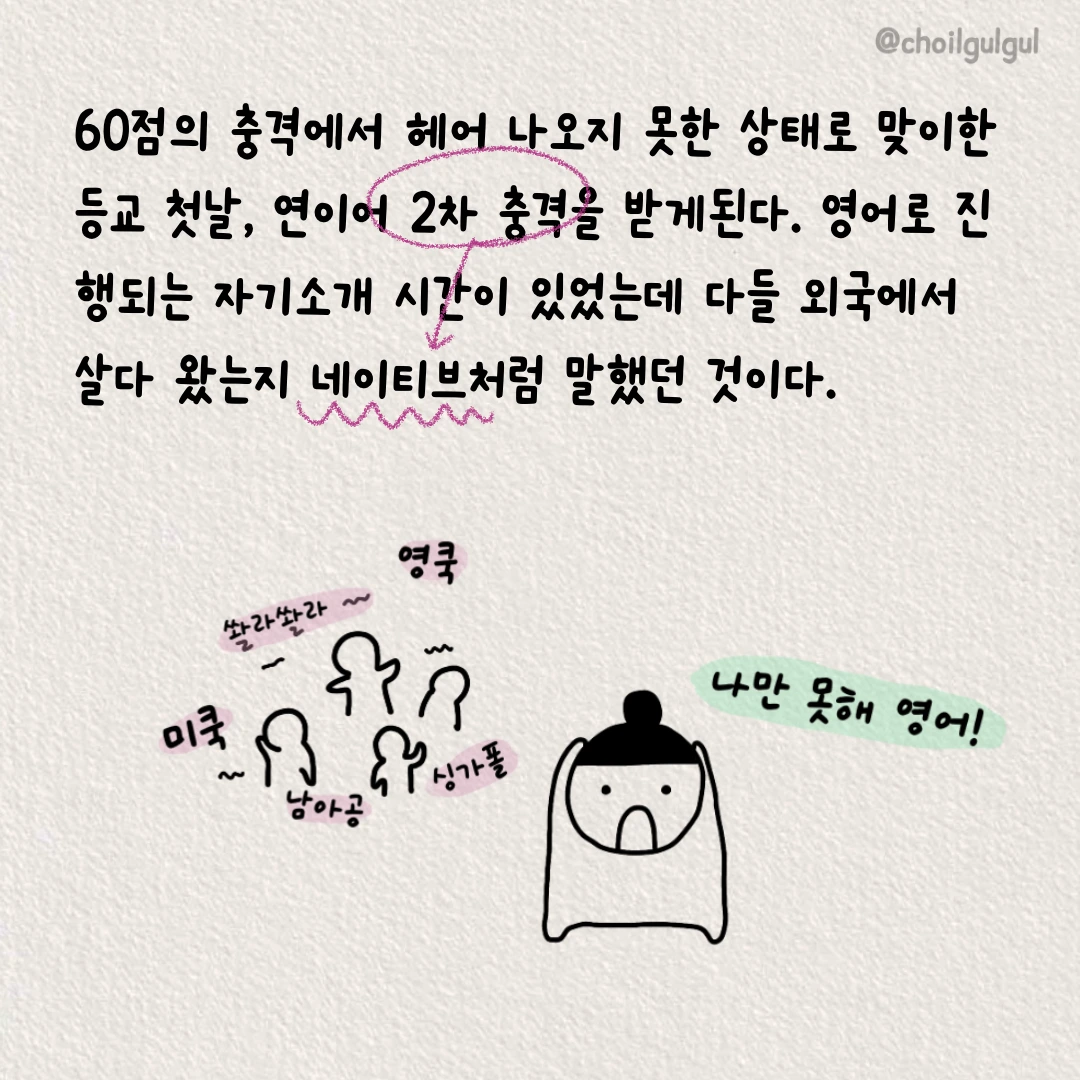 @choilgulgul
60점의 충격에서 헤어 나오지 못한 상태로 맞이한
등교 첫날, 연이어 2차 충격을 받게된다. 영어로 진
행되는 자기소개 시간이 있었는데 다들 외국에서
살다 왔는지 네이티브처럼 말했던 것이다.
영쿡
쏼라쏼라 ~
미쿡
싱가폴
남아공
나만 못해 영어!